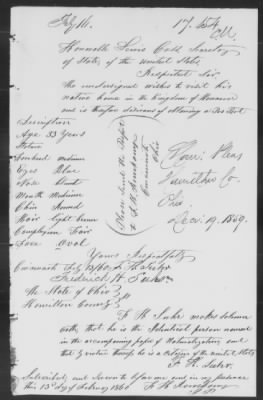 Feby 14.
17.454
Honorable Lewis Cass Secretary
of State, of the United States,
Respected Sir.
The undersigned wishes to visit his
native home in the Kingdom of Hannover
and is therefore desirous of obtaining a Pass Port
Description
Age 33 Years
Stature
Forehead medium
Eyes Blue
Nose Blunt
Mouth Medium
Chin Round
Hair light brown
Complexion Fair
Face Oval
Please send the Passport
to F. H.
Cincinnati
Ohio
Com. Pleas
Hamilton Co.
Ohio
Dec. 19. 1859.
Yours Respectfully
Cincinnati Feby 13/60
Frederich H.
The State of Ohio
Hamilton County
F H makes solemn
oath, that he is the Identical person named
in the accompanying paper of Naturalization, and
that by virtue thereof he is a Citizen of the United States
Subscribed and Sworn to before me and in my presence
this 13th day of February 1860